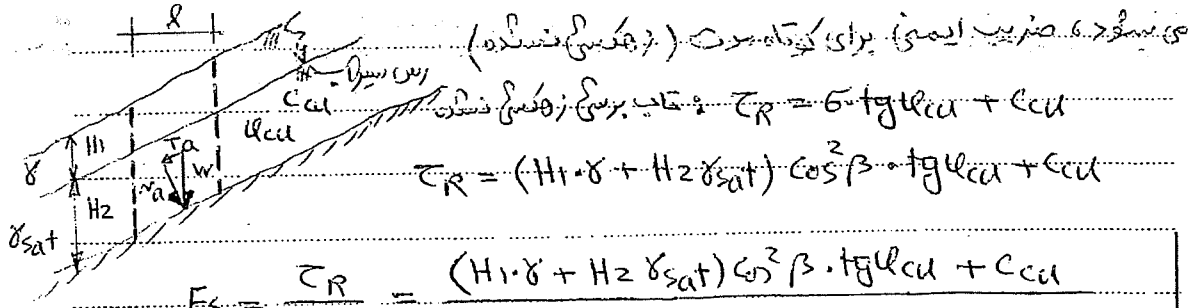 می شود، ضریب ایمنی برای کوتاه مدت (زهکشی نشده)
l
رس سیراب
C_cu
φ_cu
تاب برشی زهکشی نشده τ_R = σ · tgφ_cu + C_cu
γ
H1
Ta
Na
W
τ_R = (H1·γ + H2 γsat) cos²β · tgφ_cu + C_cu
H2
γsat
Fs = τ_R = (H1·γ + H2 γsat) cos²β · tgφ_cu + C_cu